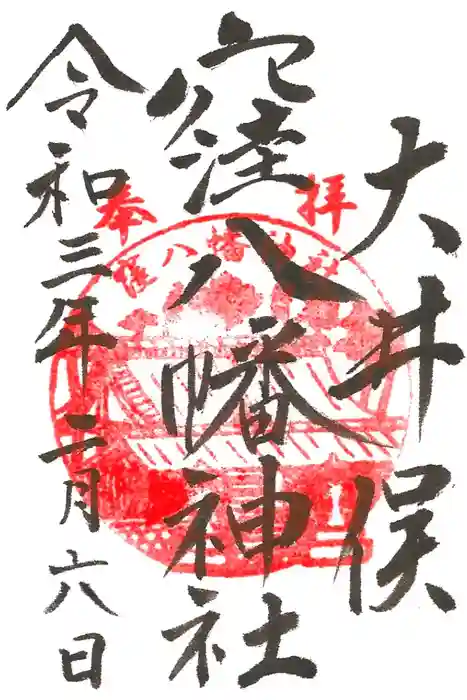 大井俣
窪八幡神社
奉拝
窪八幡神社
令和三年二月六日